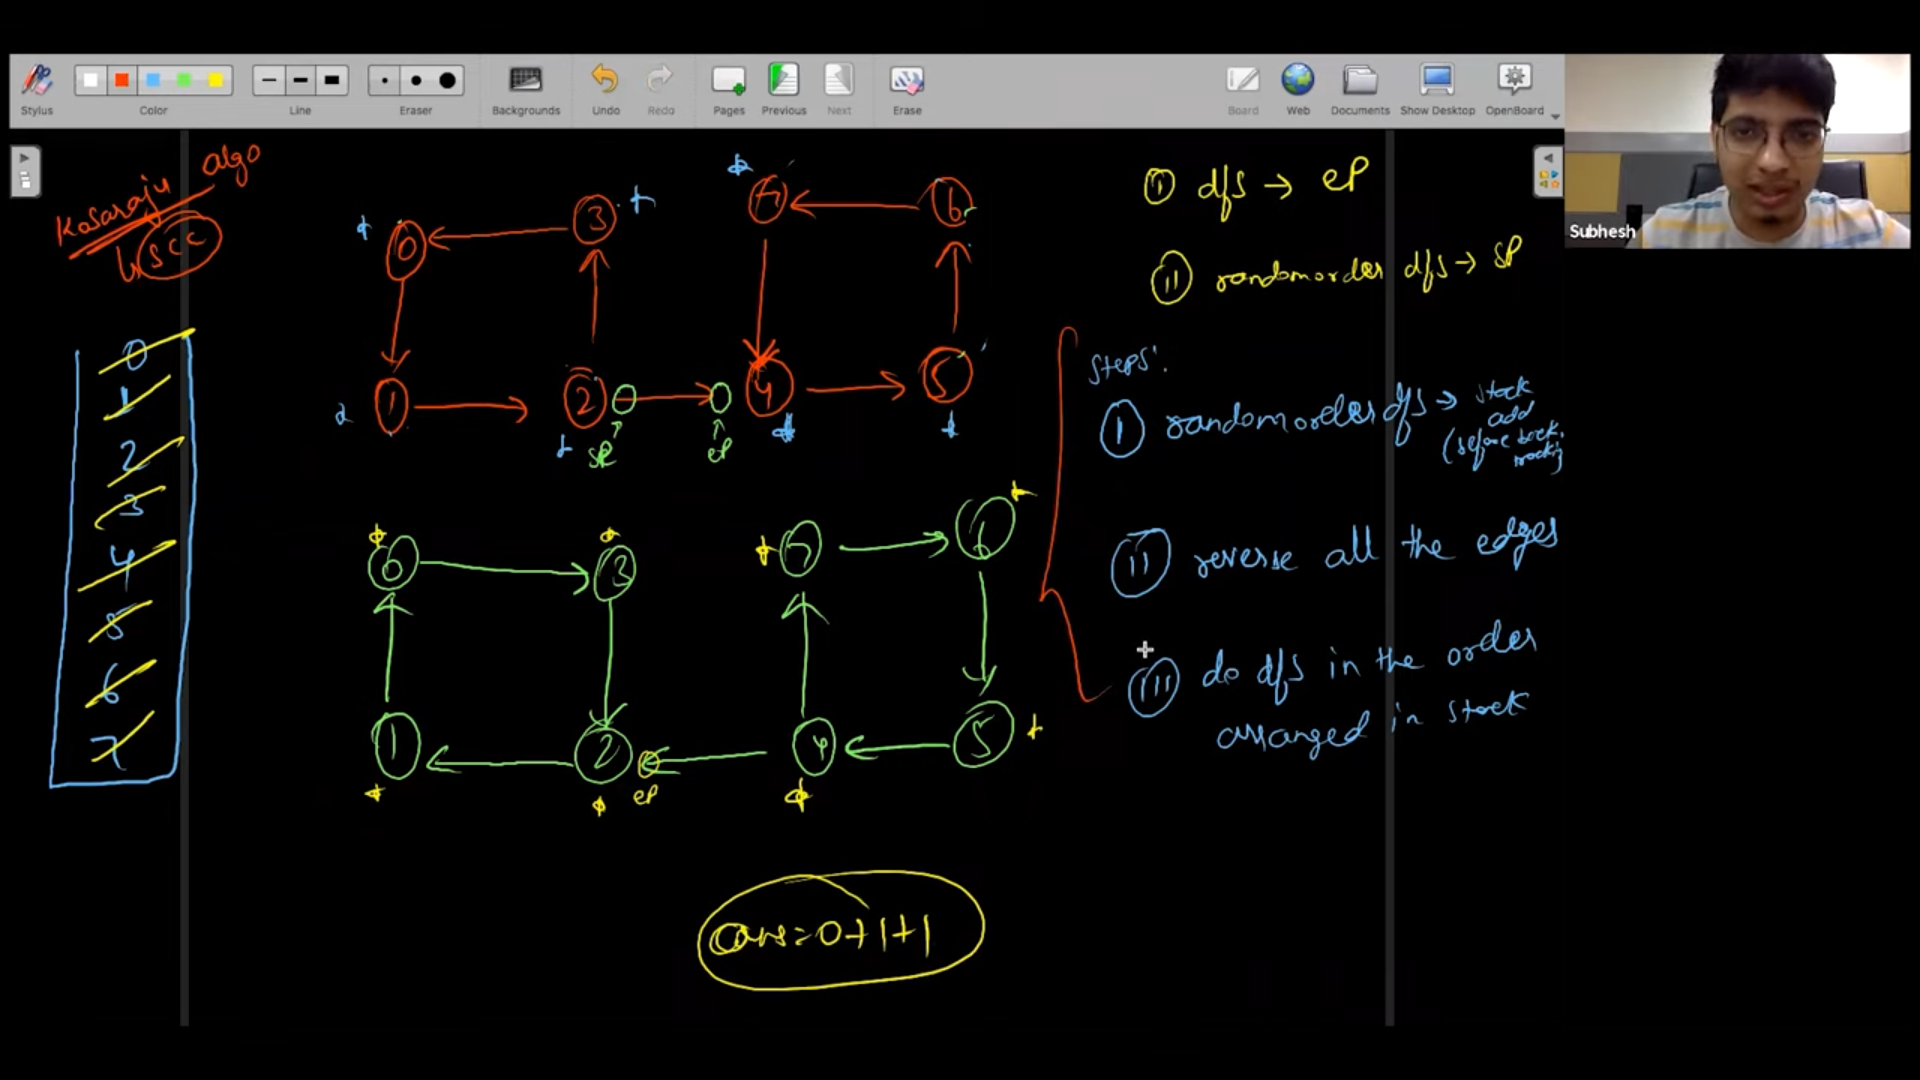 Stylus
Color
Line
Eraser
Backgrounds
Undo
Redo
Pages
Previous
Next
Erase
Board
Web
Documents
Show Desktop
OpenBoard
Subhesh
Kosaraju algo
SCC
0
1
2
3
4
5
6
7
0
3
7
6
1
2
4
5
SP
eP
0
3
7
6
1
2
4
5
eP
ans = 0+1+1
I dfs → eP
II random order dfs → SP
Steps:
I random order dfs → stack
add
(before back
tracking)
II reverse all the edges
III do dfs in the order
arranged in stack